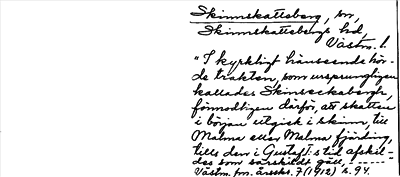 Skinnskatteberg, sn,
Skinnskattebergs hd,
Västm. l.
"I kyrkligt hänseende hör-
de trakten, som ursprungligen
kallades Skinseckeberghe,
förmodligen därför, att skatten
i början utgick i skinn, till
Malma eller Malma fjärding,
tills den i Gustaf I:s tid afskil-
des som särskildt gäll, -----
Västm. fm. årsskr. 7 (1912) s. 94.